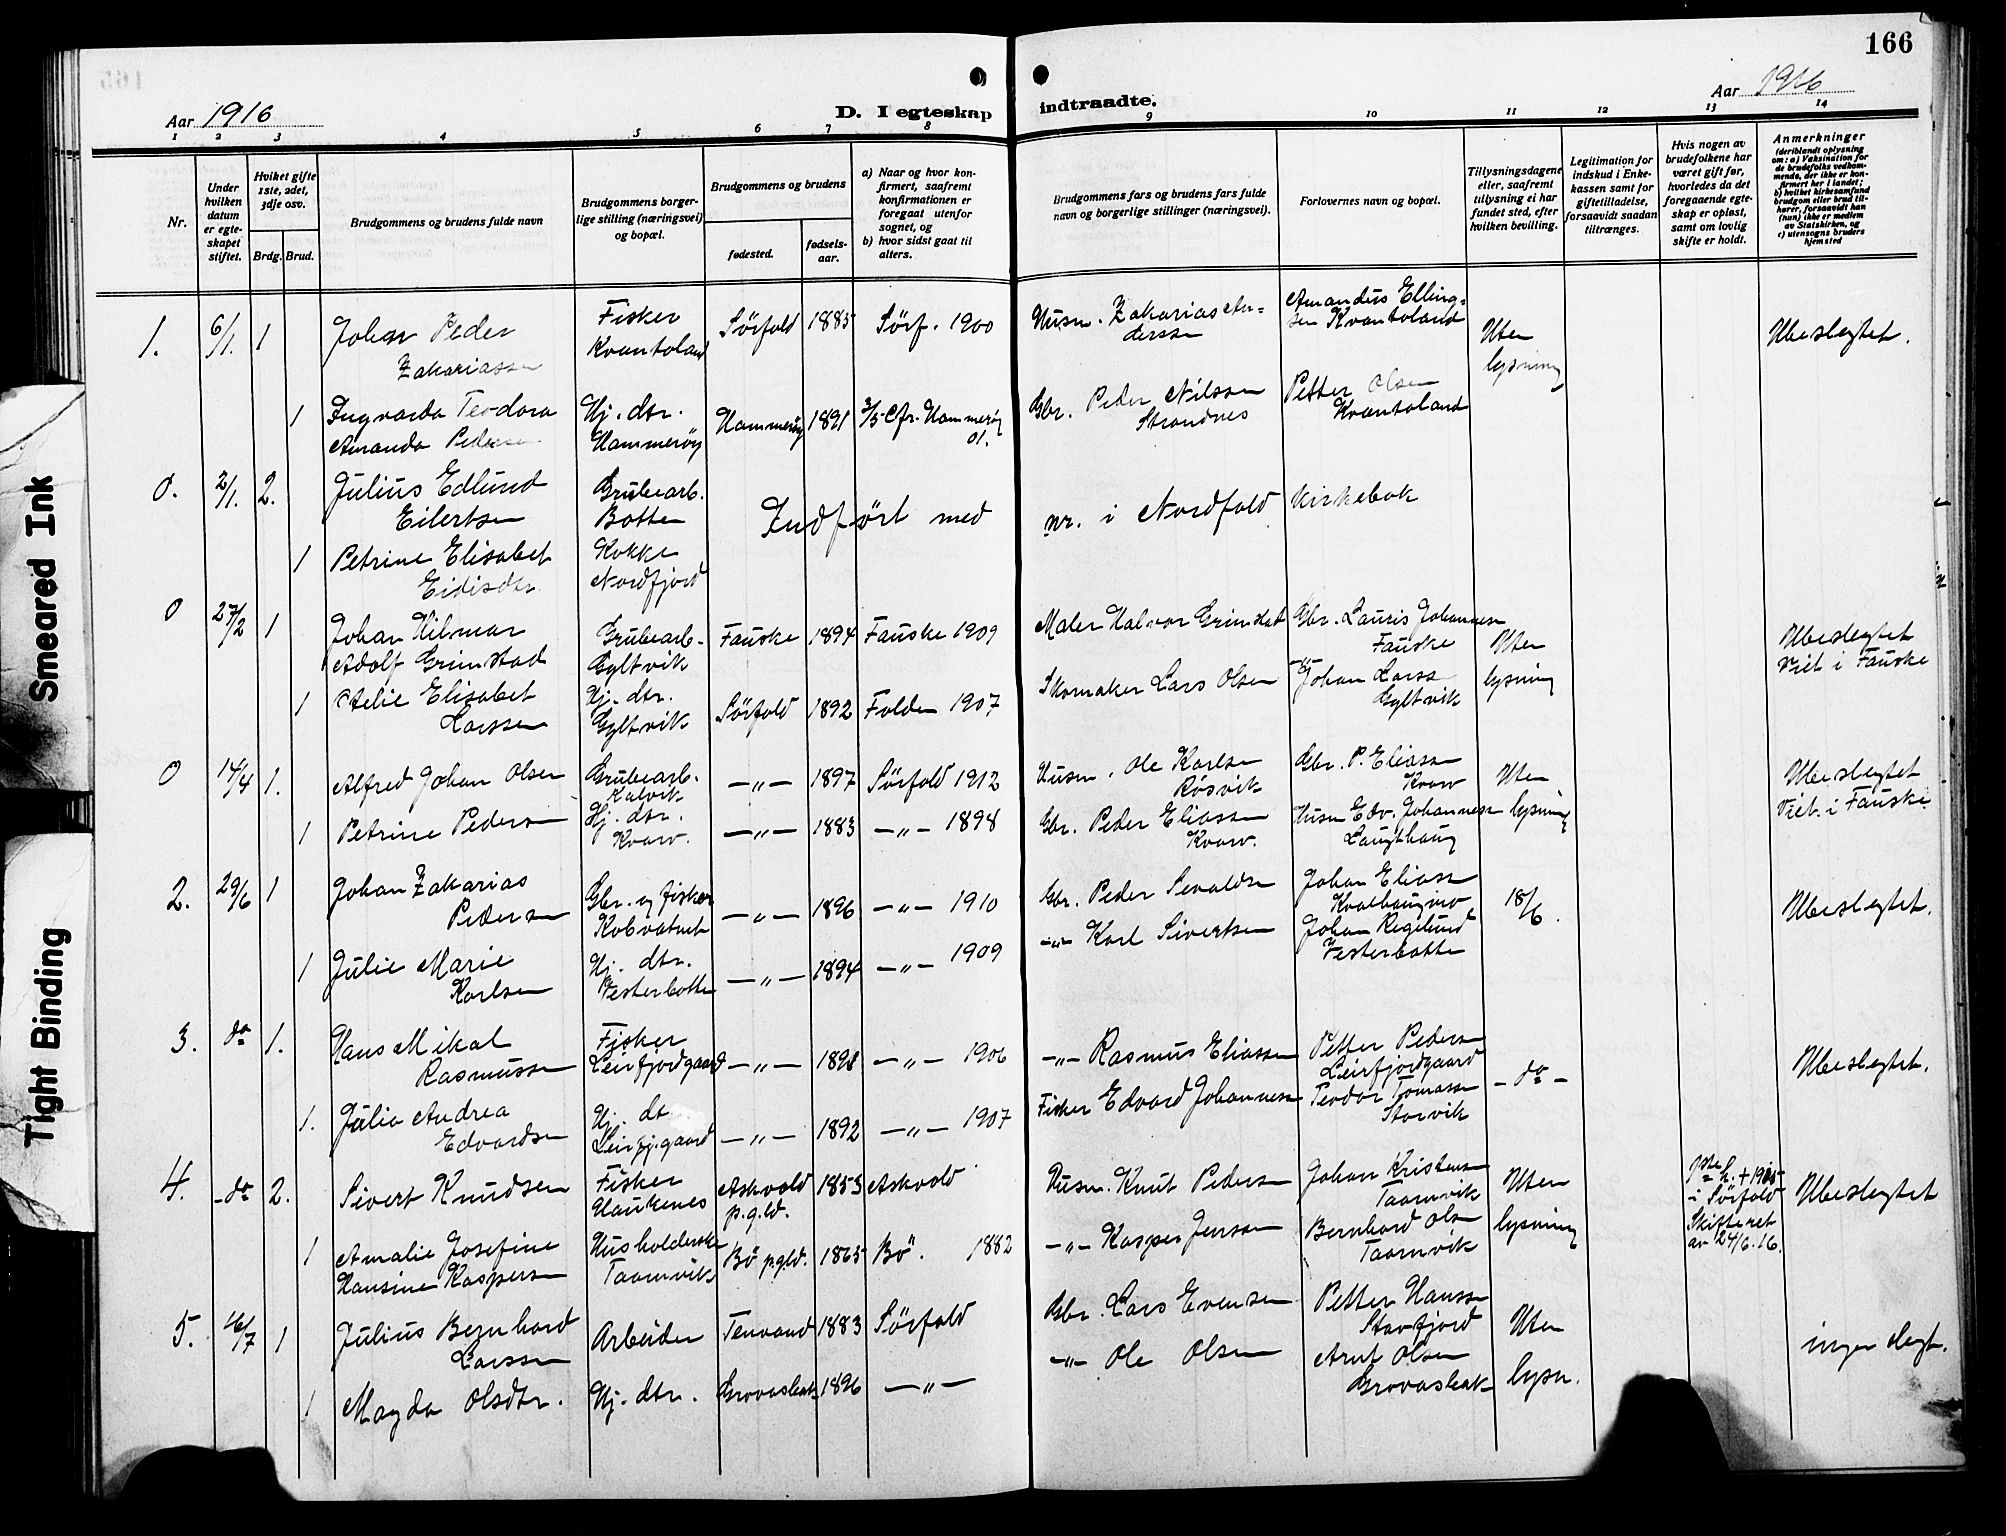 166
Aar 1916
D. I egteskap
indtraadte.
Aar 1916
1 2 3 4 5 6 7 8 9 10 11 12 13 14
Nr.
Under hvilken datum er egteskapet stiftet.
Hviket gifte 1ste, 2det, 3dje osv.
Brdg. Brud.
Brudgommens og brudens fulde navn
Brudgommens borgerlige stilling (næringsvei) og bopæl.
Brudgommens og brudens
fødested.
fødselsaar.
a) Naar og hvor konfirmert, saafremt konfirmationen er foregaat utenfor sognet, og
b) hvor sidst gaat til alters.
Brudgommens fars og brudens fars fulde navn og borgerlige stillinger (næringsvei).
Forlovernes navn og bopæl.
Tillysningsdagene eller, saafremt tillysning ei har fundet sted, efter hvilken bevilling.
Legitimation for indskud i Enkekassen samt for giftetilladelse, forsaavidt saadan tiltrænges.
Hvis nogen av brudefolkene har været gift før, hvorledes da det foregaaende egteskap er opløst, samt om lovlig skifte er holdt.
Anmerkninger
(deriblandt oplysning om: a) Vaksination for de brudefolks vedkommende, der ikke er konfirmert her i landet; b) hvilket kirkesamfund brudgom eller brud tilhører, forsaavidt han (hun) ikke er medlem av Statskirken, og c) utensogns bruders hjemsted
1. 6/1. 1 Johan Peder Zakariassen
Fisker Kvantoland
Sörfold 1885 Sörf. 1900
Husm. Zakarias Anderssen
Amandus Ellingsen Kvantoland
Uten lysning
Ubeslegtet.
1 Ingvarda Teodora Amanda Pedersen
Hj. dtr. Hammeröy
Hammeröy 1891
Gbr. Peder Nilssen Strandnes
Petter Olsen Kvantoland
0. 2/1. 2. Julius Edlund Eilertsen
Grubearb. Botten
Indfört med nr. i Nordfold Kirkebok
1 Petrine Elisabet Eidisdtr.
Kokke Nordfjord
0 27/2 1 Johan Hilmar Adolf Grimstad
Grubearb. Gyltvik
Fauske 1894 Fauske 1909
Maler Halvor Grimstad
Gbr. Lauris Johannesen Fauske
Uten lysning
Ubeslegtet
Viet i Fauske
1 Elisabet Larssen
Hj. dtr. Gyltvik
Sörfold 1892 Folden 1907
Skomaker Lars Olsen
Johan Larss Gyltvik
0 14/4 1. Alfred Johan Olsen
Grubearb. Kalvik
—„— 1897 Sörfold 1912
Husm. Ole Karlsen Røsvik
Gbr. P. Eliassen Kvarv
Uten lysning
Ubeslegtet
Viet. i Fauske
1 Petrine Pedersen
Hj. dtr. Kvarv.
—„— 1883 —„— 1898
Gbr. Peder Eliassen Kvarv.
Husm Edv. Johannessen
2. 29/6 1 Johan Zakarias Pedersen
Gbr. og fisker Kobvatnet
—„— 1896 —„— 1910
Gbr. Peder Sevaldsen
Johan Eliassen
18/6.
Ubeslegtet.
1 Julie Marie Karlsen
Hj. dtr. Vesterbotten
—„— 1894 —„— 1909
—„— Karl Sivertsen
Johan Regelund Vesterbotten
3. do 1. Hans Mikal Rasmussen
Fisker Leirfjordgaard
—„— 1891 —„— 1906
—„— Rasmus Eliassen
Petter Pedersen Leirfjordgaard
- do -
Ubeslegtet.
1. Julia Andrea Edvardsen
Hj. dt Leirfj.gaard
—„— 1892 —„— 1907
Fisker Edvard Johannessen
Teodor Tomassen Storvik
4. - do 2. Sivert Knudsen
Fisker Haukenes
Askvold p.g.ld. 1853 Askvold
Husm. Knut Pedersen
Johan Kristensen Taarnvik
Uten lysning
i Sörfold Skifteret av 24/6.16.
Ubeslegtet
1 Amalie Josefine Hansine Kaspersen
Husholderske Taarnvik
Bö p.gld. 1865 Bö. 1882
—„— Kasper Jenssen
Bernhard Olsen Taarnvik
5. 16/7 1 Julius Bernhard Larssen
Arbeider
Tenvand 1883 Sörfold
Gbr. Lars Evensen
Petter Hanssen Storfjord
Uten lysn.
ingen slegt.
1 Magda Olsdtr.
Hj. dtr.
1896 —„—
—„— Ole Olsen
Arnt Olsen
Smeared Ink
Tight Binding